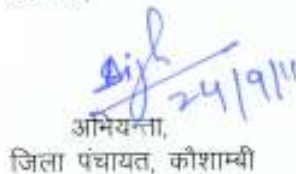 24/9/11
अभियन्ता,
जिला पंचायत, कौशाम्बी